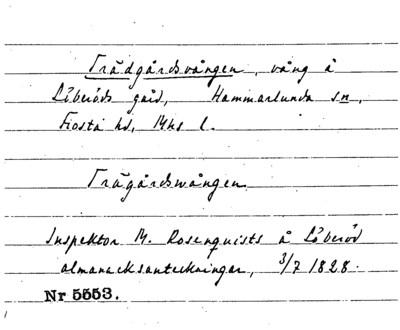 Trädgårdsvången, vång å
Löberöds gård, Hammarlunda sn,
Frosta hd, Mhs l.
Trägårdswången
Inspektor M. Rosenquists å Löberöd
almanacksanteckningar, 3/7 1828.
Nr 5553.